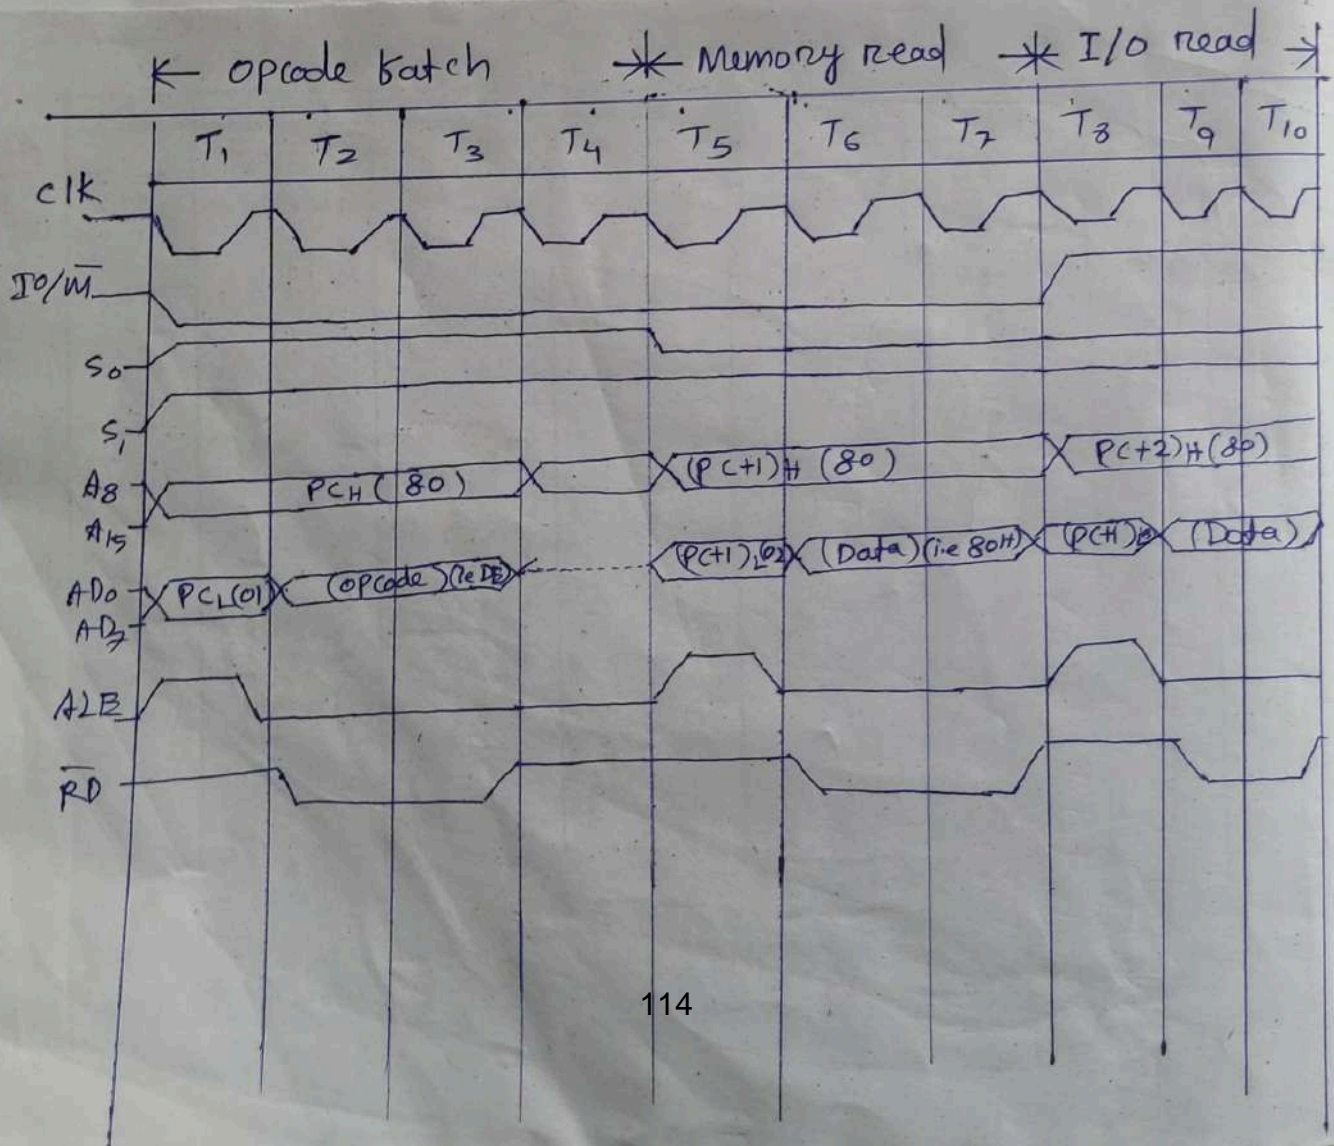 Opcode Fatch Memory read I/O read
T1 T2 T3 T4 T5 T6 T7 T8 T9 T10
clk
IO/M̅
S0
S1
A8 PCH (80) (PC+1)H (80) PC+2)H (80)
A15
AD0 PCL(01) (opcode) (ie DB) (PC+1)L02 (Data) (i.e 80H) (Data)
AD7
ALE
R̅D̅
114